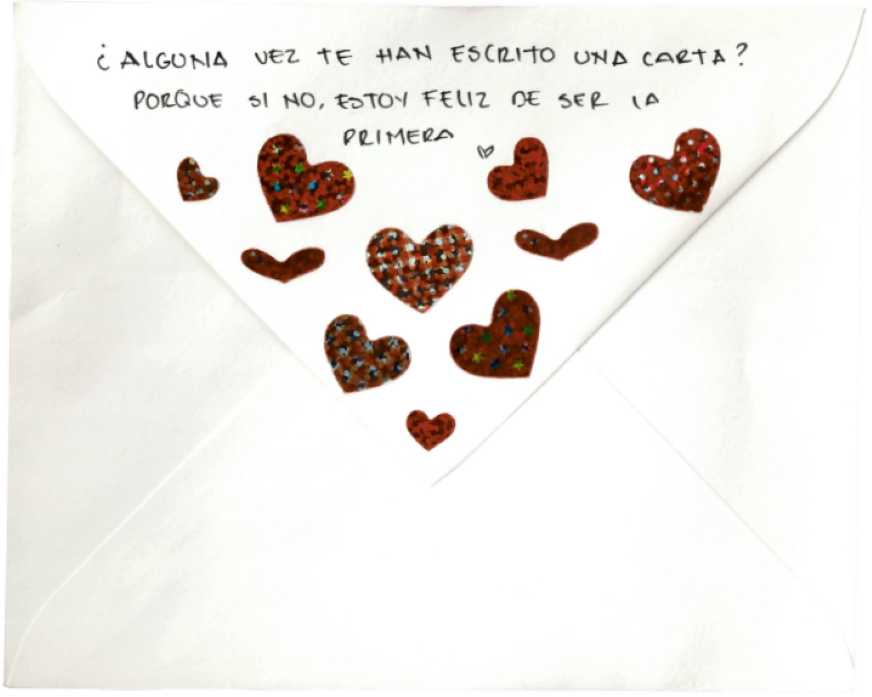 ¿ALGUNA VEZ TE HAN ESCRITO UNA CARTA?
PORQUE SI NO, ESTOY FELIZ DE SER LA
PRIMERA